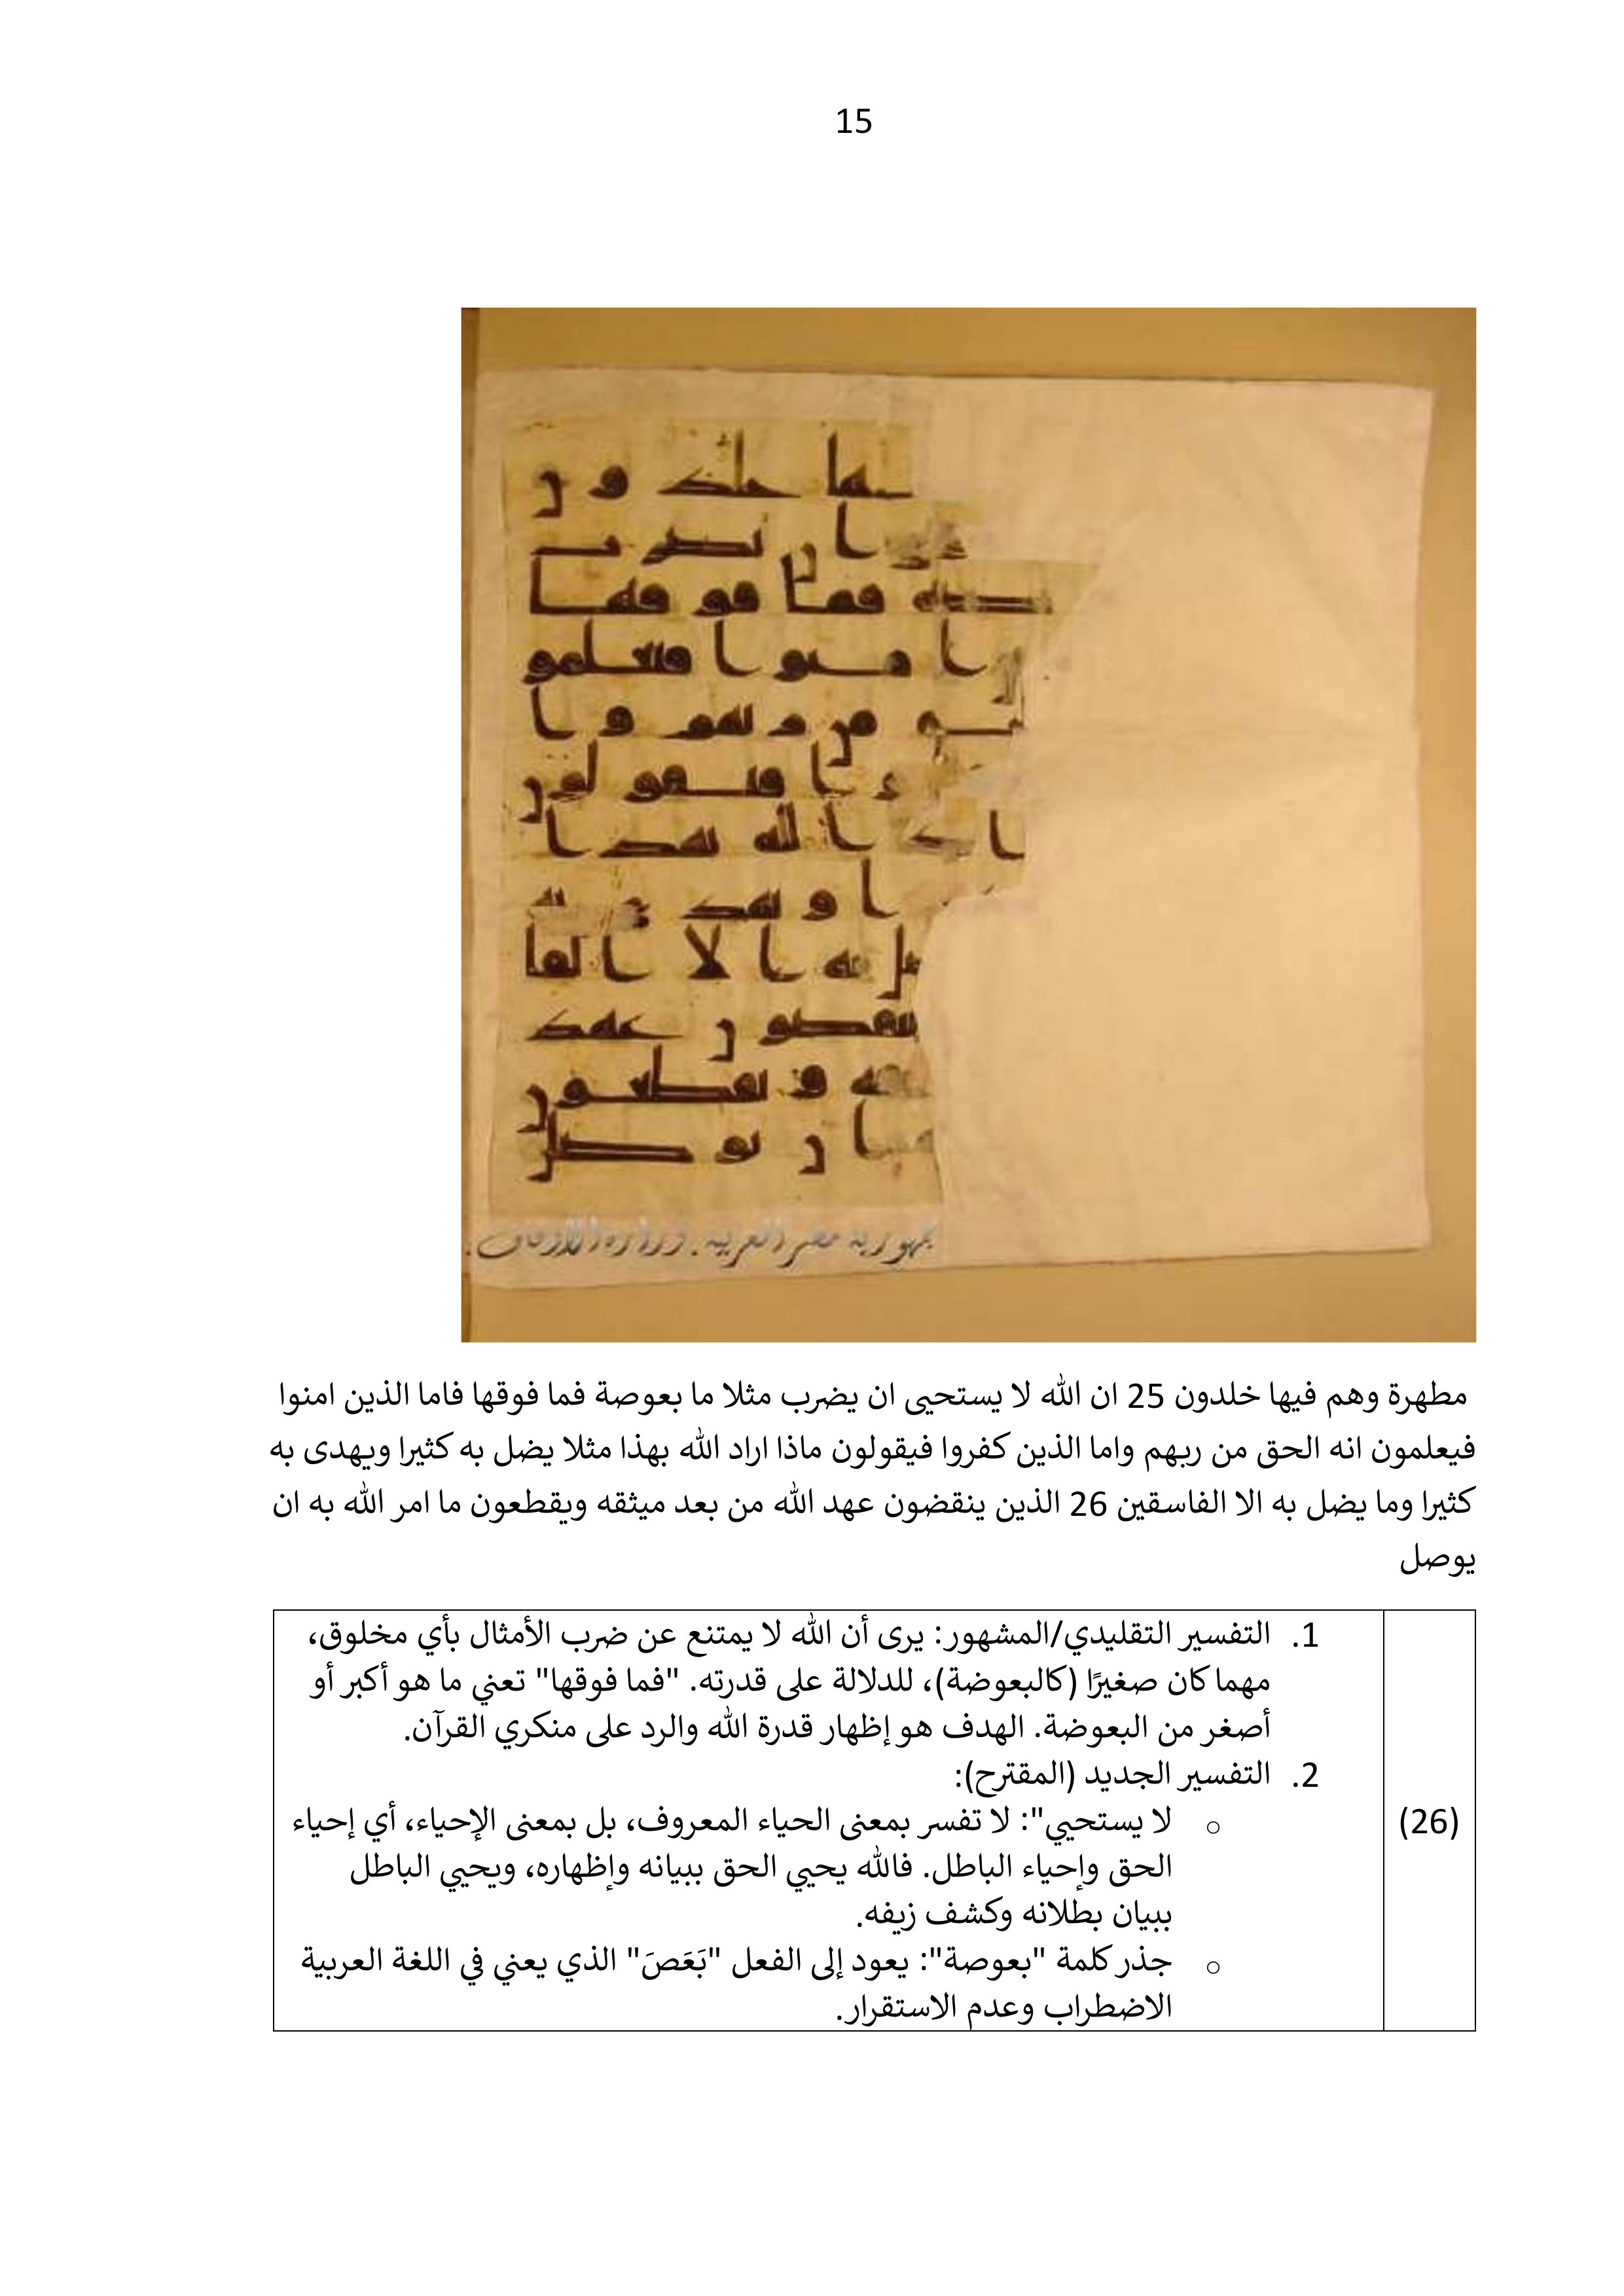 15
ـها خلد و ن
ا ن يضر ب
ـصه فما فو قها
ا منو ا فيعلمو
ر بهم و ا
ا فيقو لو ن
ا د ا لله بهذ ا
ا و يهد ي به
ل به ا لا ا لفا
ينقضو ن عهد
قه و يقطعو ن
به ا ن يو صل
جمهورية مصر العربية . وزارة الأوقاف .
مطهرة وهم فيها خلدون 25 ان الله لا يستحيى ان يضرب مثلا ما بعوصة فما فوقها فاما الذين امنوا
فيعلمون انه الحق من ربهم واما الذين كفروا فيقولون ماذا اراد الله بهذا مثلا يضل به كثيرا ويهدى به
كثيرا وما يضل به الا الفاسقين 26 الذين ينقضون عهد الله من بعد ميثقه ويقطعون ما امر الله به ان
يوصل
(26)
1. التفسير التقليدي/المشهور: يرى أن الله لا يمتنع عن ضرب الأمثال بأي مخلوق،
مهما كان صغيرًا (كالبعوضة)، للدلالة على قدرته. "فما فوقها" تعني ما هو أكبر أو
أصغر من البعوضة. الهدف هو إظهار قدرة الله والرد على منكري القرآن.
2. التفسير الجديد (المقترح):
○ لا يستحيي": لا تفسر بمعنى الحياء المعروف، بل بمعنى الإحياء، أي إحياء
الحق وإحياء الباطل. فالله يحيي الحق ببيانه وإظهاره، ويحيي الباطل
ببيان بطلانه وكشف زيفه.
○ جذر كلمة "بعوصة": يعود إلى الفعل "بَعَصَ" الذي يعني في اللغة العربية
الاضطراب وعدم الاستقرار.